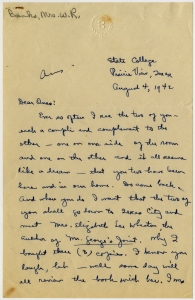 Banks, Mrs. W.R.
Ans
State College
Prairie View, Texas
August 4, 1942
Dear Anes:
Ever so often I see the two of you -
such a couple and complement to the
other - one on one side of the room
and one on the other and it all seems
like a dream - that you two have been
here and in our home. Do come back.
And when you do I want that the two of
you shall go down to Texas City and
meet Mrs. Elizabeth Lee Wheaton the
author of Mr. George's Joint. Why I
bought three (3) copies. I know you
laugh, but - well some day will
all review the book with her. I am